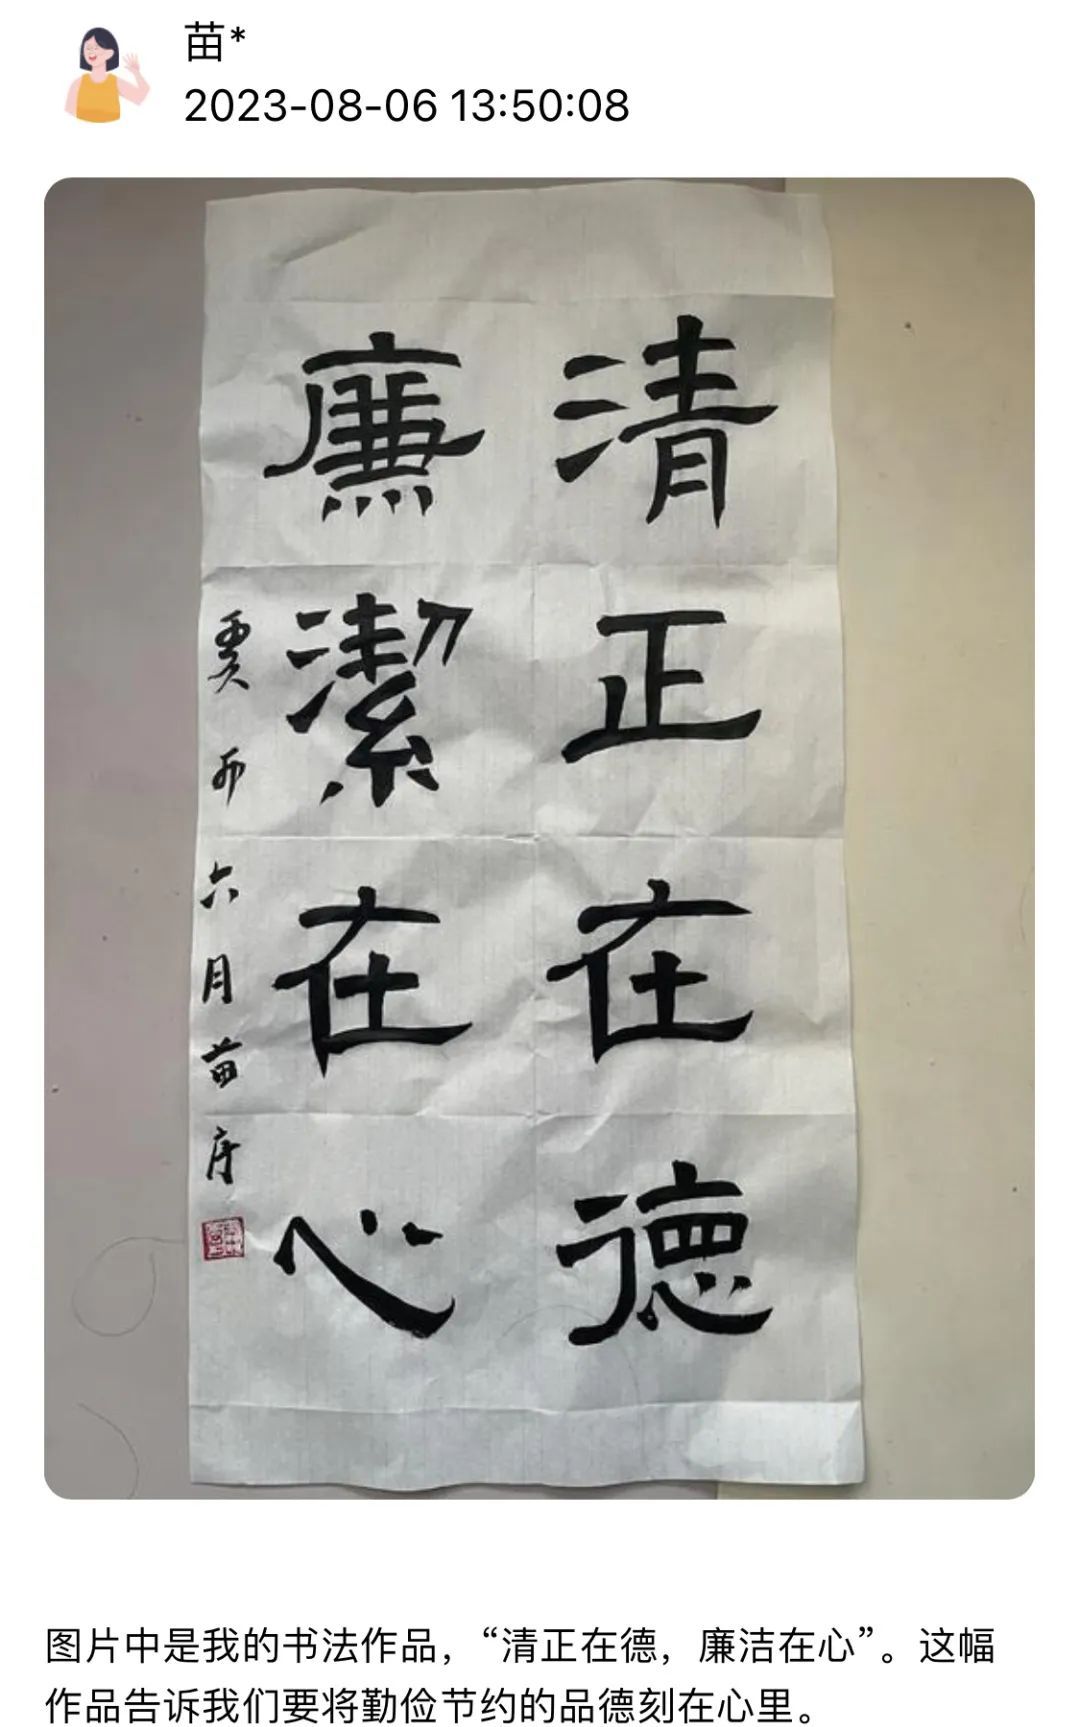 苗*
2023-08-06 13:50:08
清正在德
廉潔在心
癸卯六月苗序
图片中是我的书法作品，“清正在德，廉洁在心”。这幅
作品告诉我们要将勤俭节约的品德刻在心里。